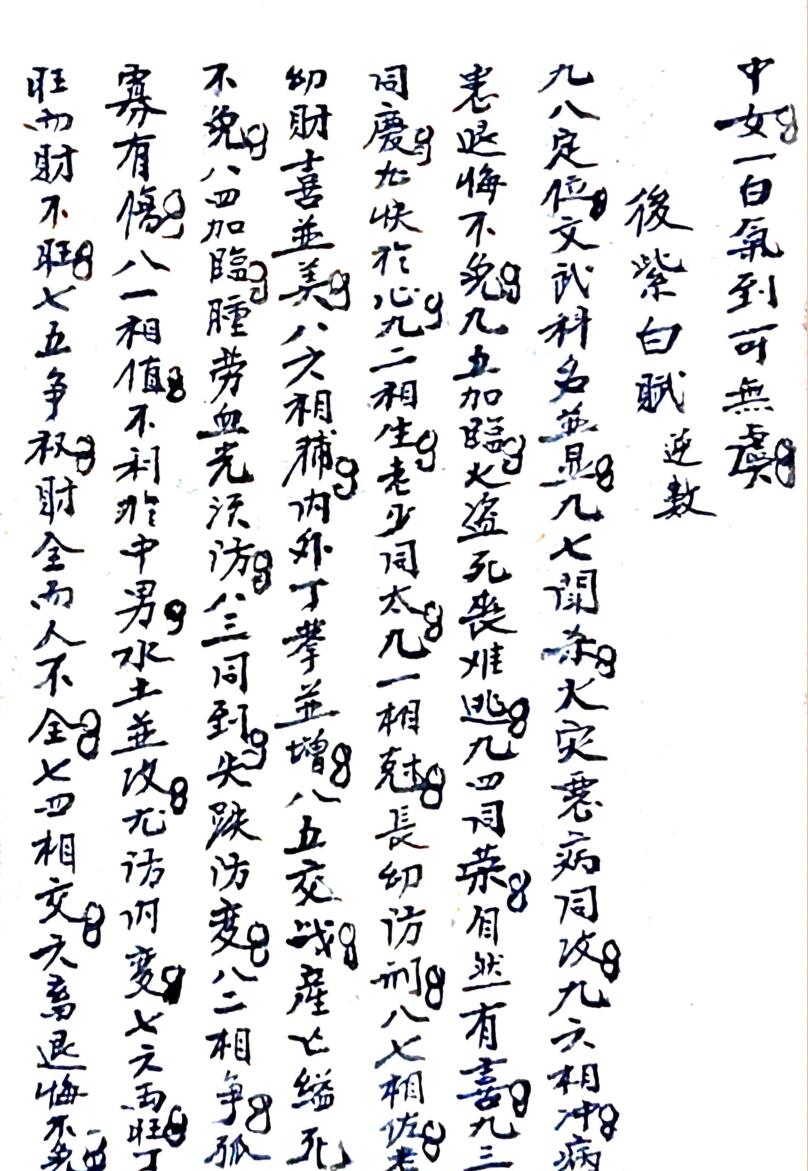 中女一白氣到可無虞
後紫白賦 逆數
九八定位文武科名並显九七開杀火灾悪病同攻九六相冲病
患退悔不免九五加臨火盗死喪难逃九四同荣自然有喜九三
同慶尤快於心九二相生老少同太九一相尅長幼访刑八七相佐老
幼財喜並美八六相補内外丁拳並增八五交战産亡縊死
不免八四加臨腫劳血光须访八三同到失跌访変八二相争孤
寡有傷八一相值不利於中男水土並攻尤访内変七六两旺丁
旺而財不旺七五争权財全而人不全七四相交六畜退悔不免